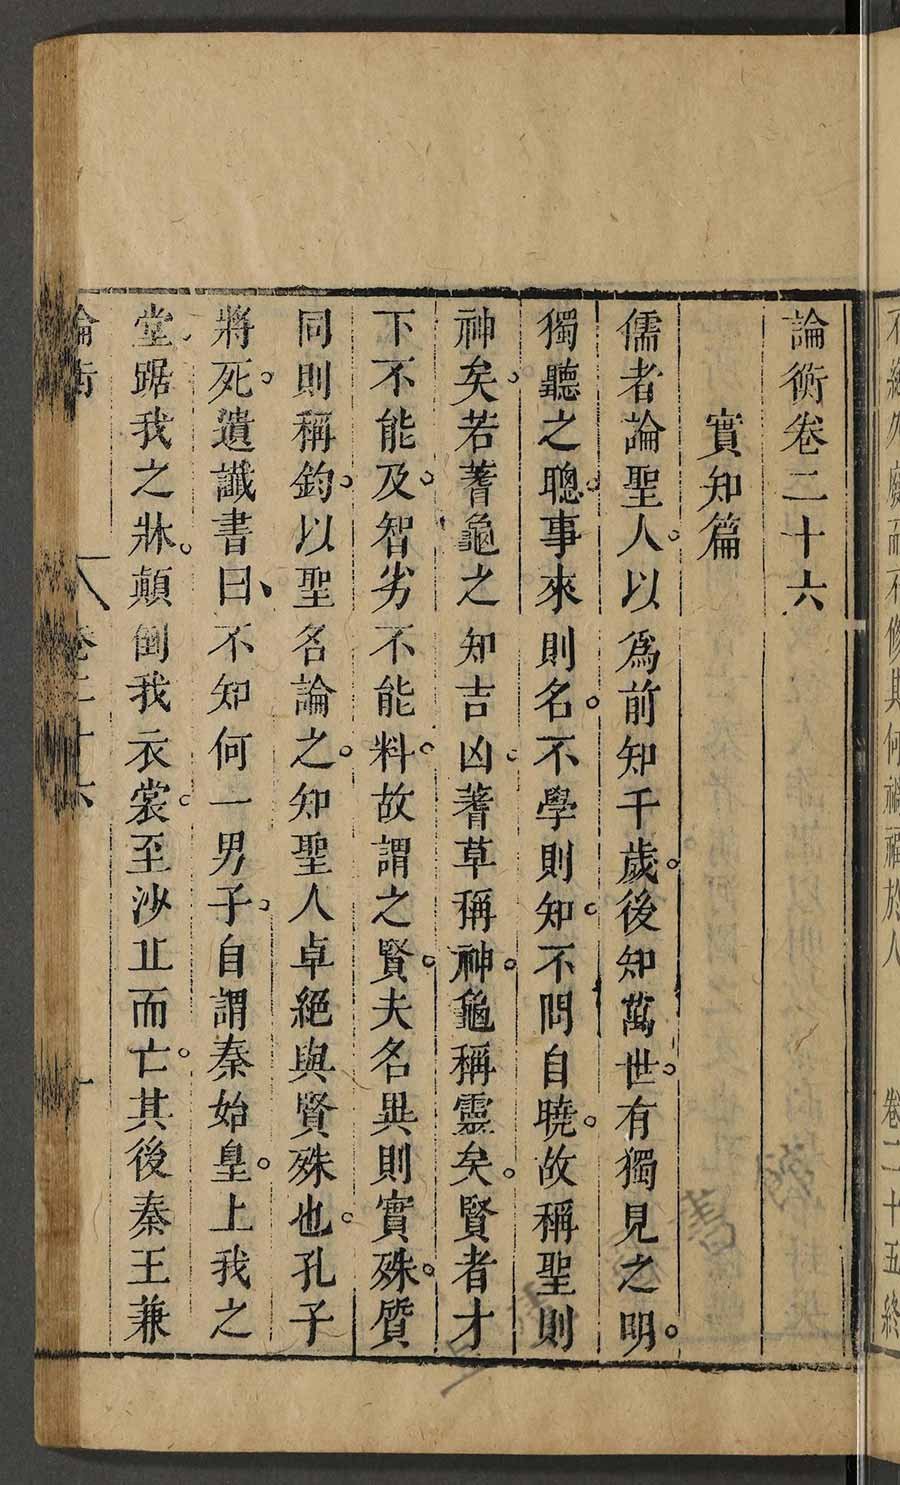 論衡卷二十六
實知篇
儒者論聖人。以爲前知千歲。後知萬世。有獨見之明。
獨聽之聰。事來則名。不學則知。不問自曉。故稱聖則
神矣。若蓍龜之知吉凶。蓍草稱神。龜稱靈矣。賢者才
下不能及。智劣不能料。故謂之賢。夫名異則實殊。質
同則稱鈞。以聖名論之。知聖人卓絕與賢殊也。孔子
將死。遺讖書曰、不知何一男子。自謂秦始皇。上我之
堂、踞我之牀。顛倒我衣裳。至沙丘而亡。其後秦王兼
論衡 卷二十六 一
卷二十五終